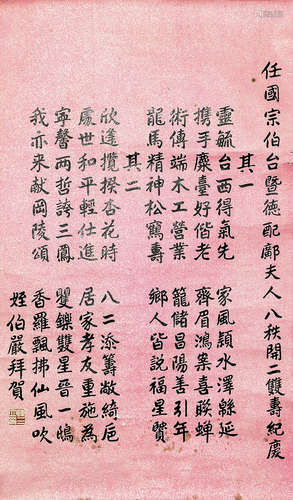 任國宗伯台暨德配鄺夫人八秩開二雙壽紀慶
其一
靈毓台西得氣先 家風頴水澤緜延
携手臺好偕老 齊眉鴻案喜聯蟬
術傳端木工營業 籠儲昌陽善引年
龍馬精神松鶴壽 鄉人皆說福星賢
其二
欣逢攬揆杏花時 八二添籌敞綺巵
處世和平輕仕進 居家孝友重施為
寧馨兩哲誇三鳳 矍鑠雙星晉一
我亦来献岡陵頌 香羅飄拂仙風吹
姪伯嚴拜賀